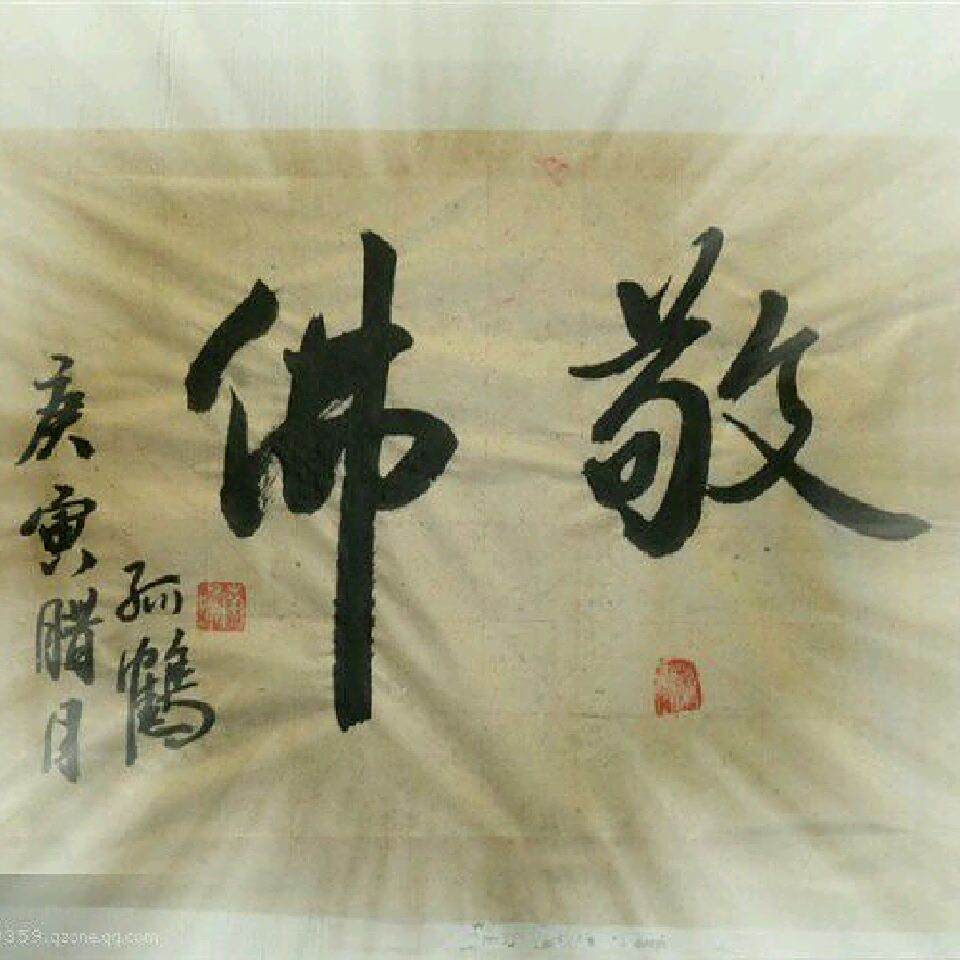 敬佛
庚寅腊月
孤鹤
359.qzone.qq.com